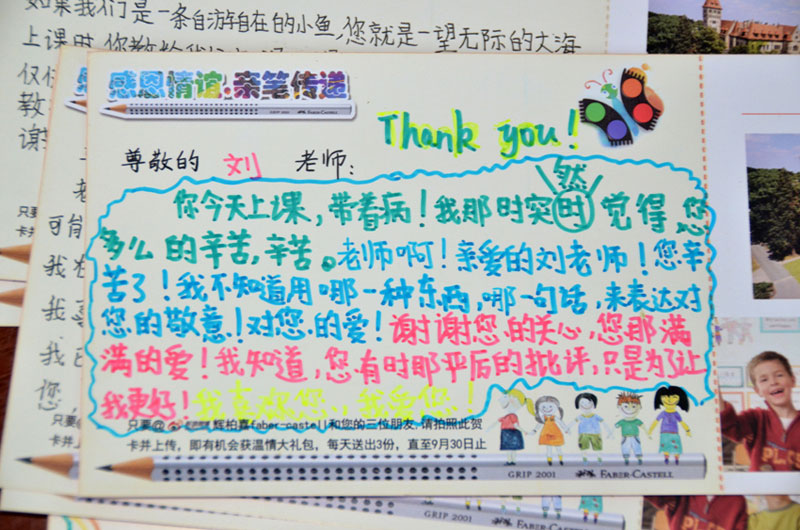 如果我们是一条自游自在的小鱼,您就是一望无际的大海
上课时,你教给我们
仅仅
教
谢谢
感恩情谊·亲笔传递
GRIP 2001 FABER-CASTELL
Thank you!
尊敬的 刘 老师:
然
你今天上课,带着病!我那时突时觉得您
多么的辛苦,辛苦。老师啊!亲爱的刘老师!您辛
苦了!我不知道用哪一种东西,哪一句话,来表达对
您的敬意!对您的爱!谢谢您的关心,您那满
满的爱!我知道,您有时那严厉的批评,只是为了让
我更好!我喜欢您,我爱您!
只要@辉柏嘉faber_castell和您的三位朋友,请拍照此贺
卡并上传,即有机会获温情大礼包,每天送出3份,直至9月30日止
GRIP 2001 FABER-CASTELL
只要
卡并
可能
我
我
我
您,
只要@
卡并上